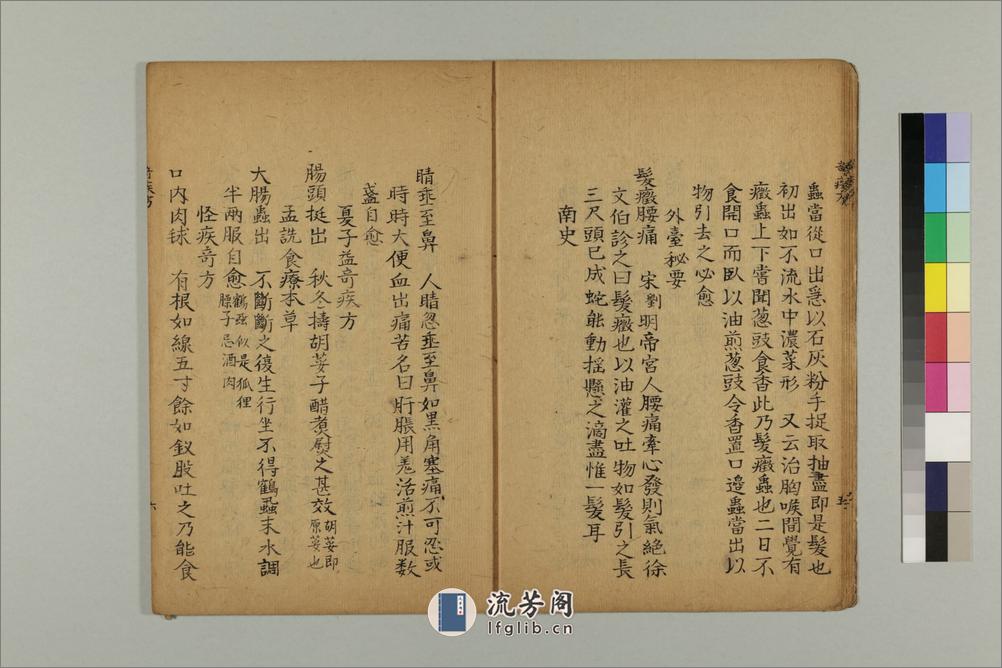 蟲當從口出急以石灰粉手捉取抽盡即是髮也
初出如不流水中濃菜形　又云治胸喉間覺有
癥蟲上下嘗聞葱豉食香此乃髮癥蟲也二日不
食開口而臥以油煎葱豉令香置口邊蟲當出以
物引去之必愈
外臺秘要
髮癥腰痛　宋劉明帝宮人腰痛牽心發則氣絕徐
文伯診之曰髮癥也以油灌之吐物如髮引之長
三尺頭已成蛇能動搖懸之滴盡惟一髮耳
南史
睛垂至鼻　人睛忽垂至鼻如黑角塞痛不可忍或
時時大便血出痛苦名曰肝脹用羌活煎汁服数
盞自愈
夏子益奇疾方
腸頭挺出　秋冬擣胡荽子醋煮熨之甚效胡荽即原荽也
孟詵食療本草
大腸蟲出　不斷斷之復生行坐不得鶴蝨末水調
半兩服自愈鶴蝨似是狐狸臊子忌酒肉
怪疾奇方
口內肉毬　有根如線五寸餘如釵股吐之乃能食
流芳阁
lfglib.cn